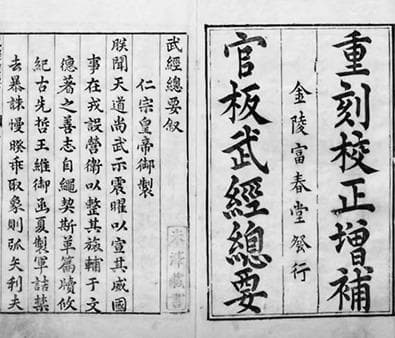 重刻校正增補
金陵富春堂發行
官板武經總要
武經總要叙
仁宗皇帝御製
朕聞天道尚武示震曜以宣其威國
事在戎設營衛以整其旅輔于文
德著之善志自繩契斯革篇牘攸
紀古先哲王維御函夏製軍詰禁
去暴誅慢睽乖取象則弧矢利夫